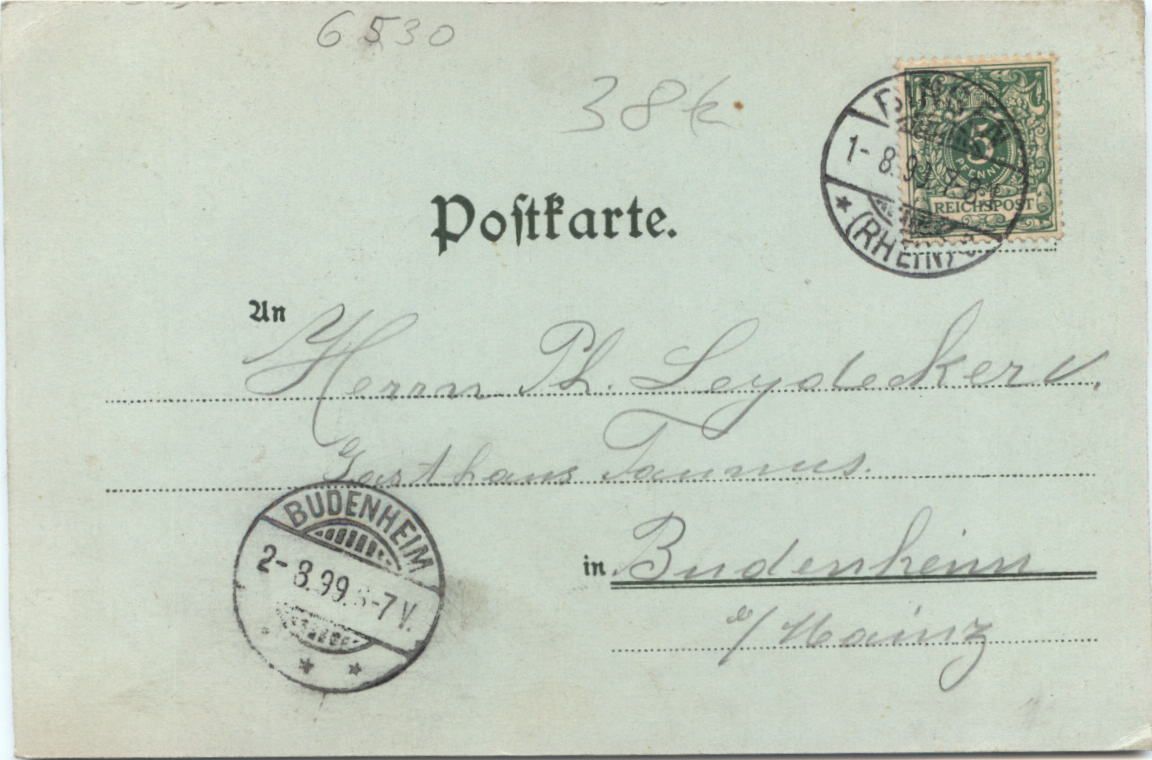 6530
38k
BINGEN
1-8.99.7-8
(RHEIN)
5
PFENNIG
REICHSPOST
Postkarte.
An
Herrn Ph. Leydecker V.
Gasthaus Taunus.
BUDENHEIM
2-8.99. -7 V.
in Budenheim
b/Mainz